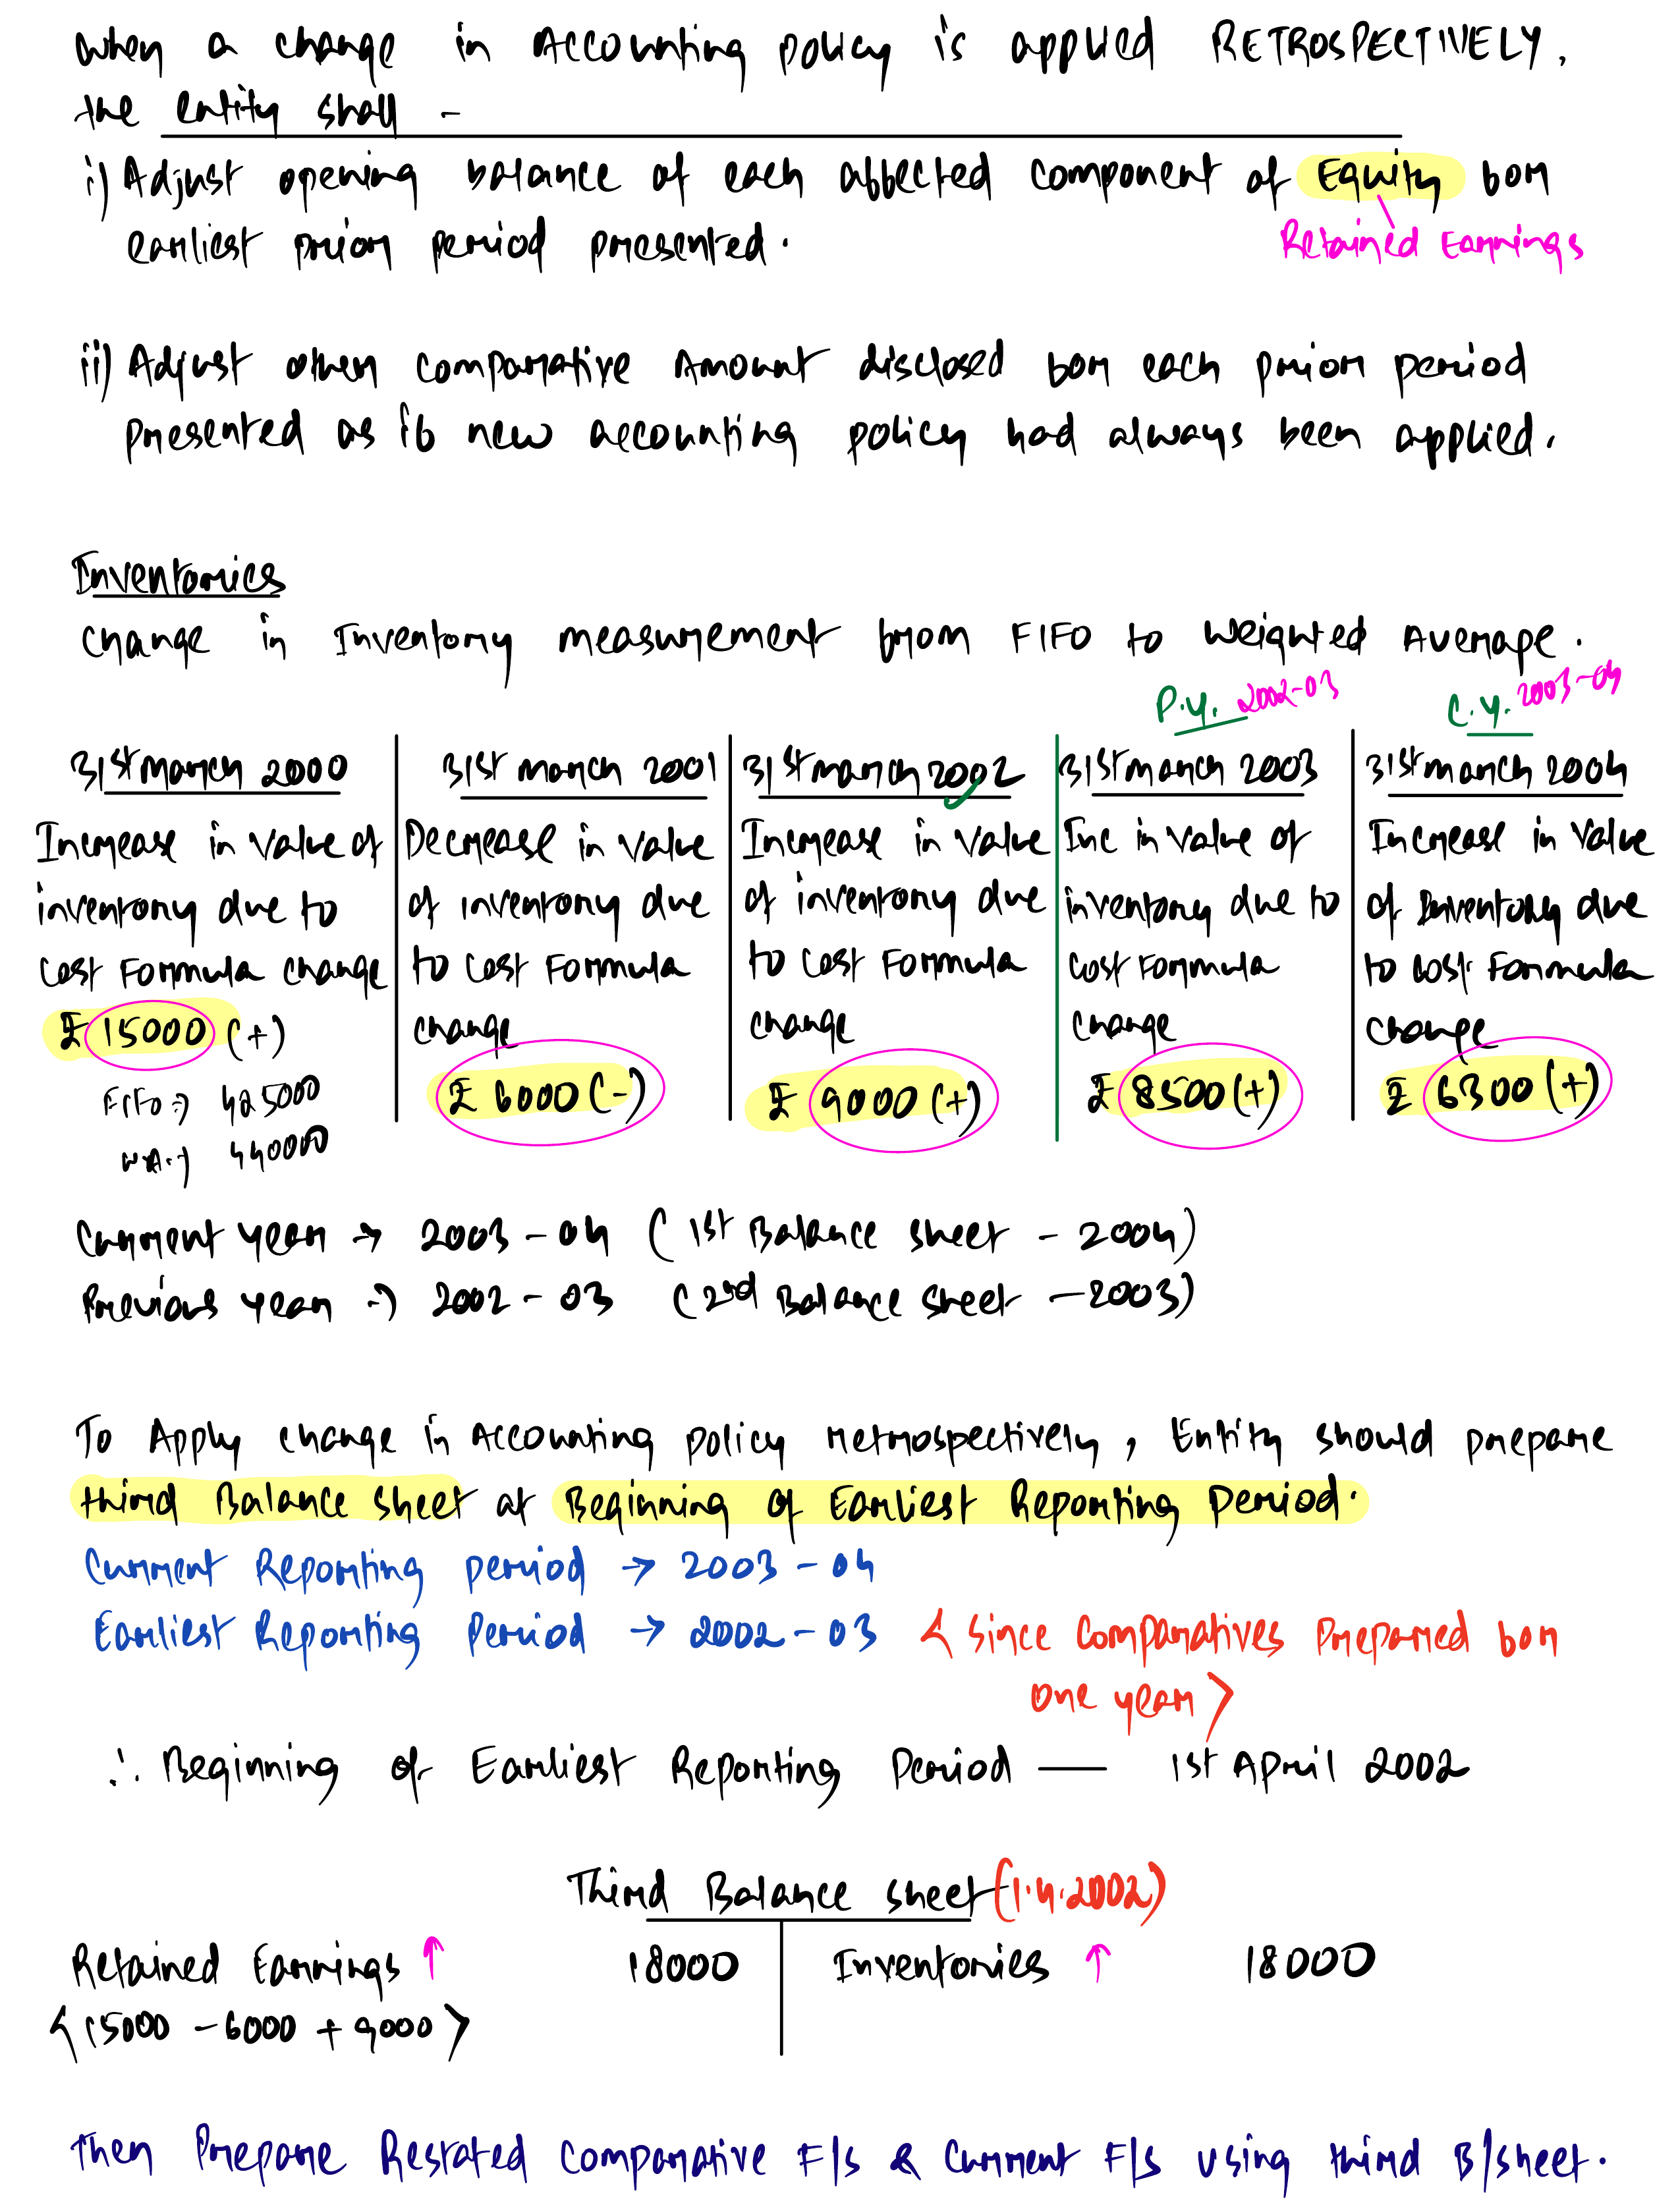 when a change in Accounting policy is applied RETROSPECTIVELY,
the entity shall -
i) Adjust opening balance of each affected component of Equity for
earliest prior period presented.
Retained Earnings
ii) Adjust other comparative Amount disclosed for each prior period
presented as if new accounting policy had always been applied.
Inventories
change in Inventory measurement from FIFO to Weighted Average.
P.Y. 2002-03
C.Y. 2003-04
31st March 2000
Increase in Value of
inventory due to
Cost Formula change
₹ 15000 (+)
FIFO → 425000
W.A. → 440000
31st march 2001
Decrease in value
of inventory due
to Cost Formula
change
₹ 6000 (-)
31st march 2002
Increase in value
of inventory due
to cost Formula
change
₹ 9000 (+)
31st march 2003
Inc in value of
inventory due to
cost Formula
change
₹ 8500 (+)
31st march 2004
Increase in value
of Inventory due
to cost Formula
change
₹ 6300 (+)
Current year → 2003-04 (1st Balance sheet - 2004)
Previous year → 2002-03 (2nd Balance sheet - 2003)
To Apply change in Accounting policy retrospectively, Entity should prepare
third Balance sheet at Beginning of Earliest Reporting Period.
Current Reporting period → 2003-04
Earliest Reporting Period → 2002-03 < since comparatives prepared for
one year >
∴ Beginning of Earliest Reporting Period — 1st April 2002
Third Balance sheet (1.4.2002)
Retained Earnings ↑ 18000 Inventories ↑ 18000
<15000 - 6000 + 9000>
Then Prepare Restated Comparative F/s & Current F/s using third B/sheet.